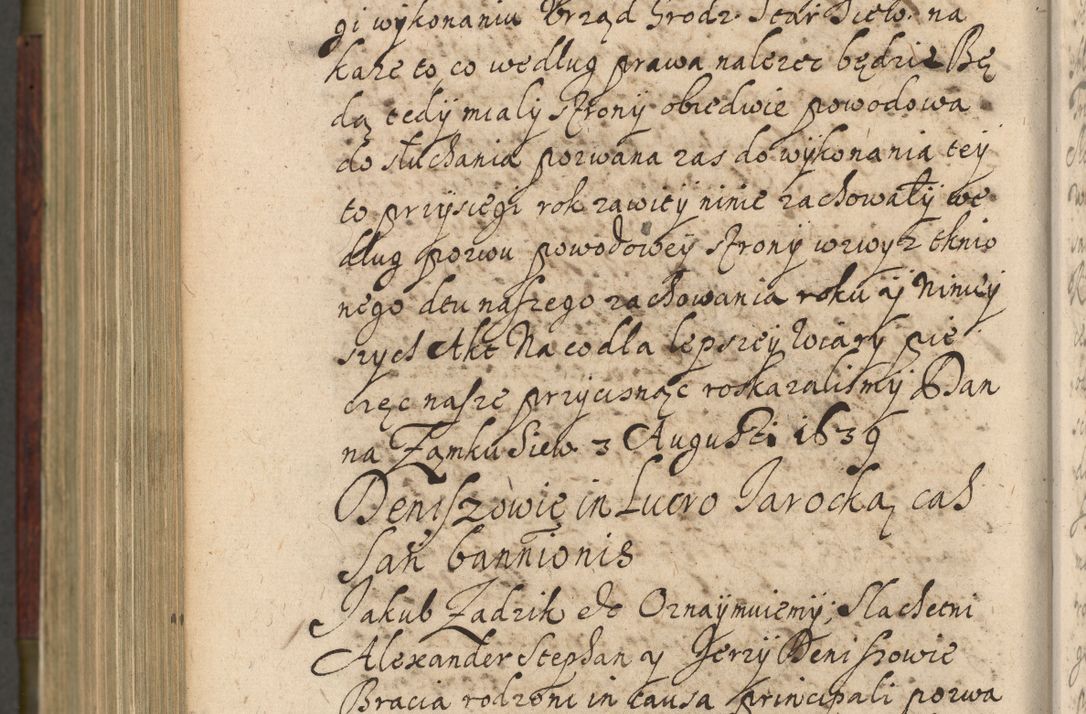 gi wykonaniu Vrząd Grodz. Star Siew. na
każe to co według prawa należec będzie Bę
dą tedy miały strony obiedwie powodowa
do słuchania pozwana zas do wykonania tey
to przysięgi rok zawity ninie zachowały we
dług pozwu powodowey strony wzwyz tknio
nego dtu naszego zachowania roku y Niniey
szych Akt Na co dla lepszey wiary pie
częc nasze przycisnąc roskazalismy Dan
na Zamku Siew. 3 Augusti 1639
Deniszowie in Lucro Jarocką cas
san bannionis
Jakub Zadzik etc Oznaymuiemy; Slachetni
Alexander Stephan y Jerzy Deniszowie
Bracia rodzeni in causa principali pozwa